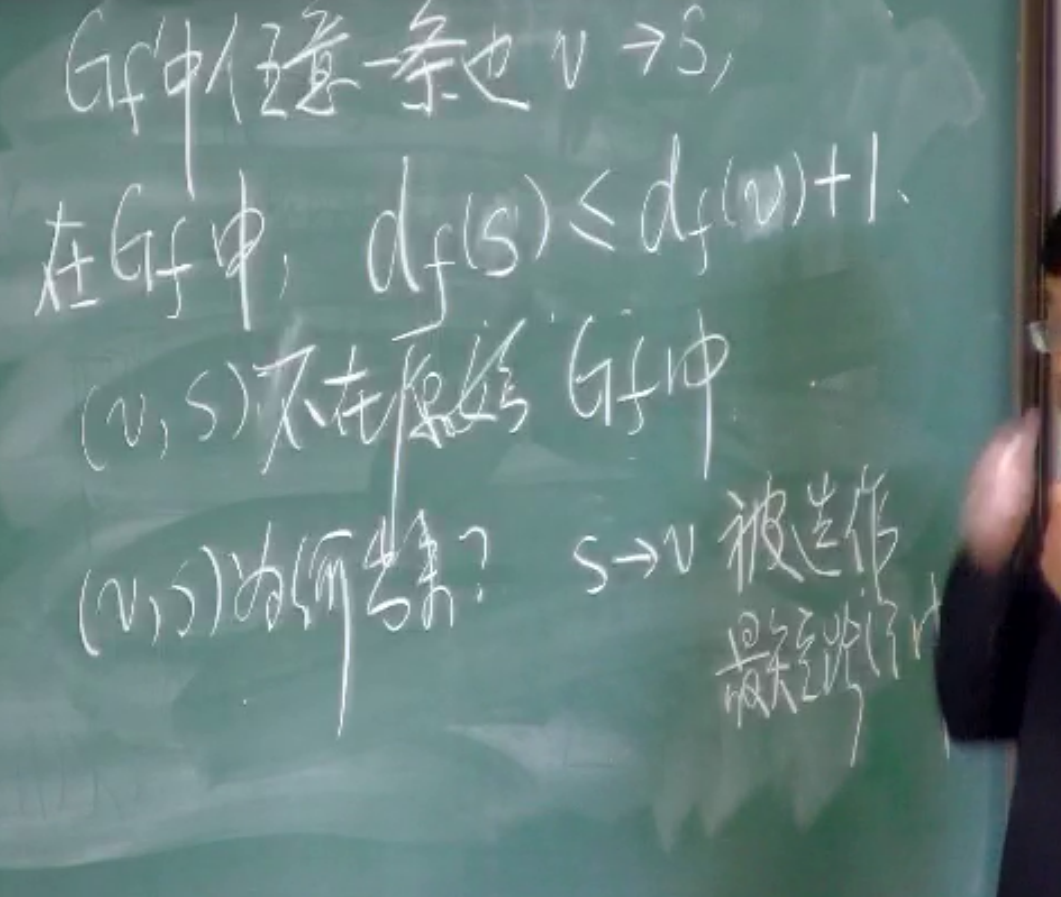 Gf中任意一条边 v→s,
在Gf中, df(s)≤df(v)+1.
(v,s)不在原始 Gf中
(v,s)为何出来? s→v 被选作
最短路径中